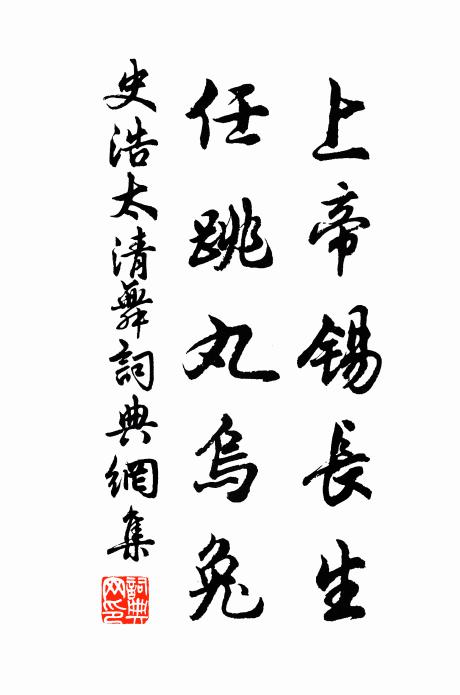 上帝錫長生
任跳丸烏兔
史浩太清舞詞典網集
詞典網印